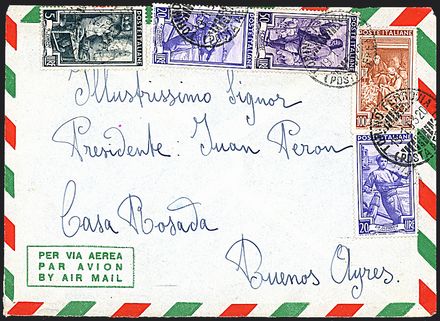 5 LIRE
POSTE ITALIANE
20 LIRE
POSTE ITALIANE
POSTE ITALIANE
POSTE ITALIANE
100
Illustrissimo Signor
Presidente: Juan Peron
Casa Rosada
Buenos Ayres.
20 LIRE
PER VIA AEREA
PAR AVION
BY AIR MAIL